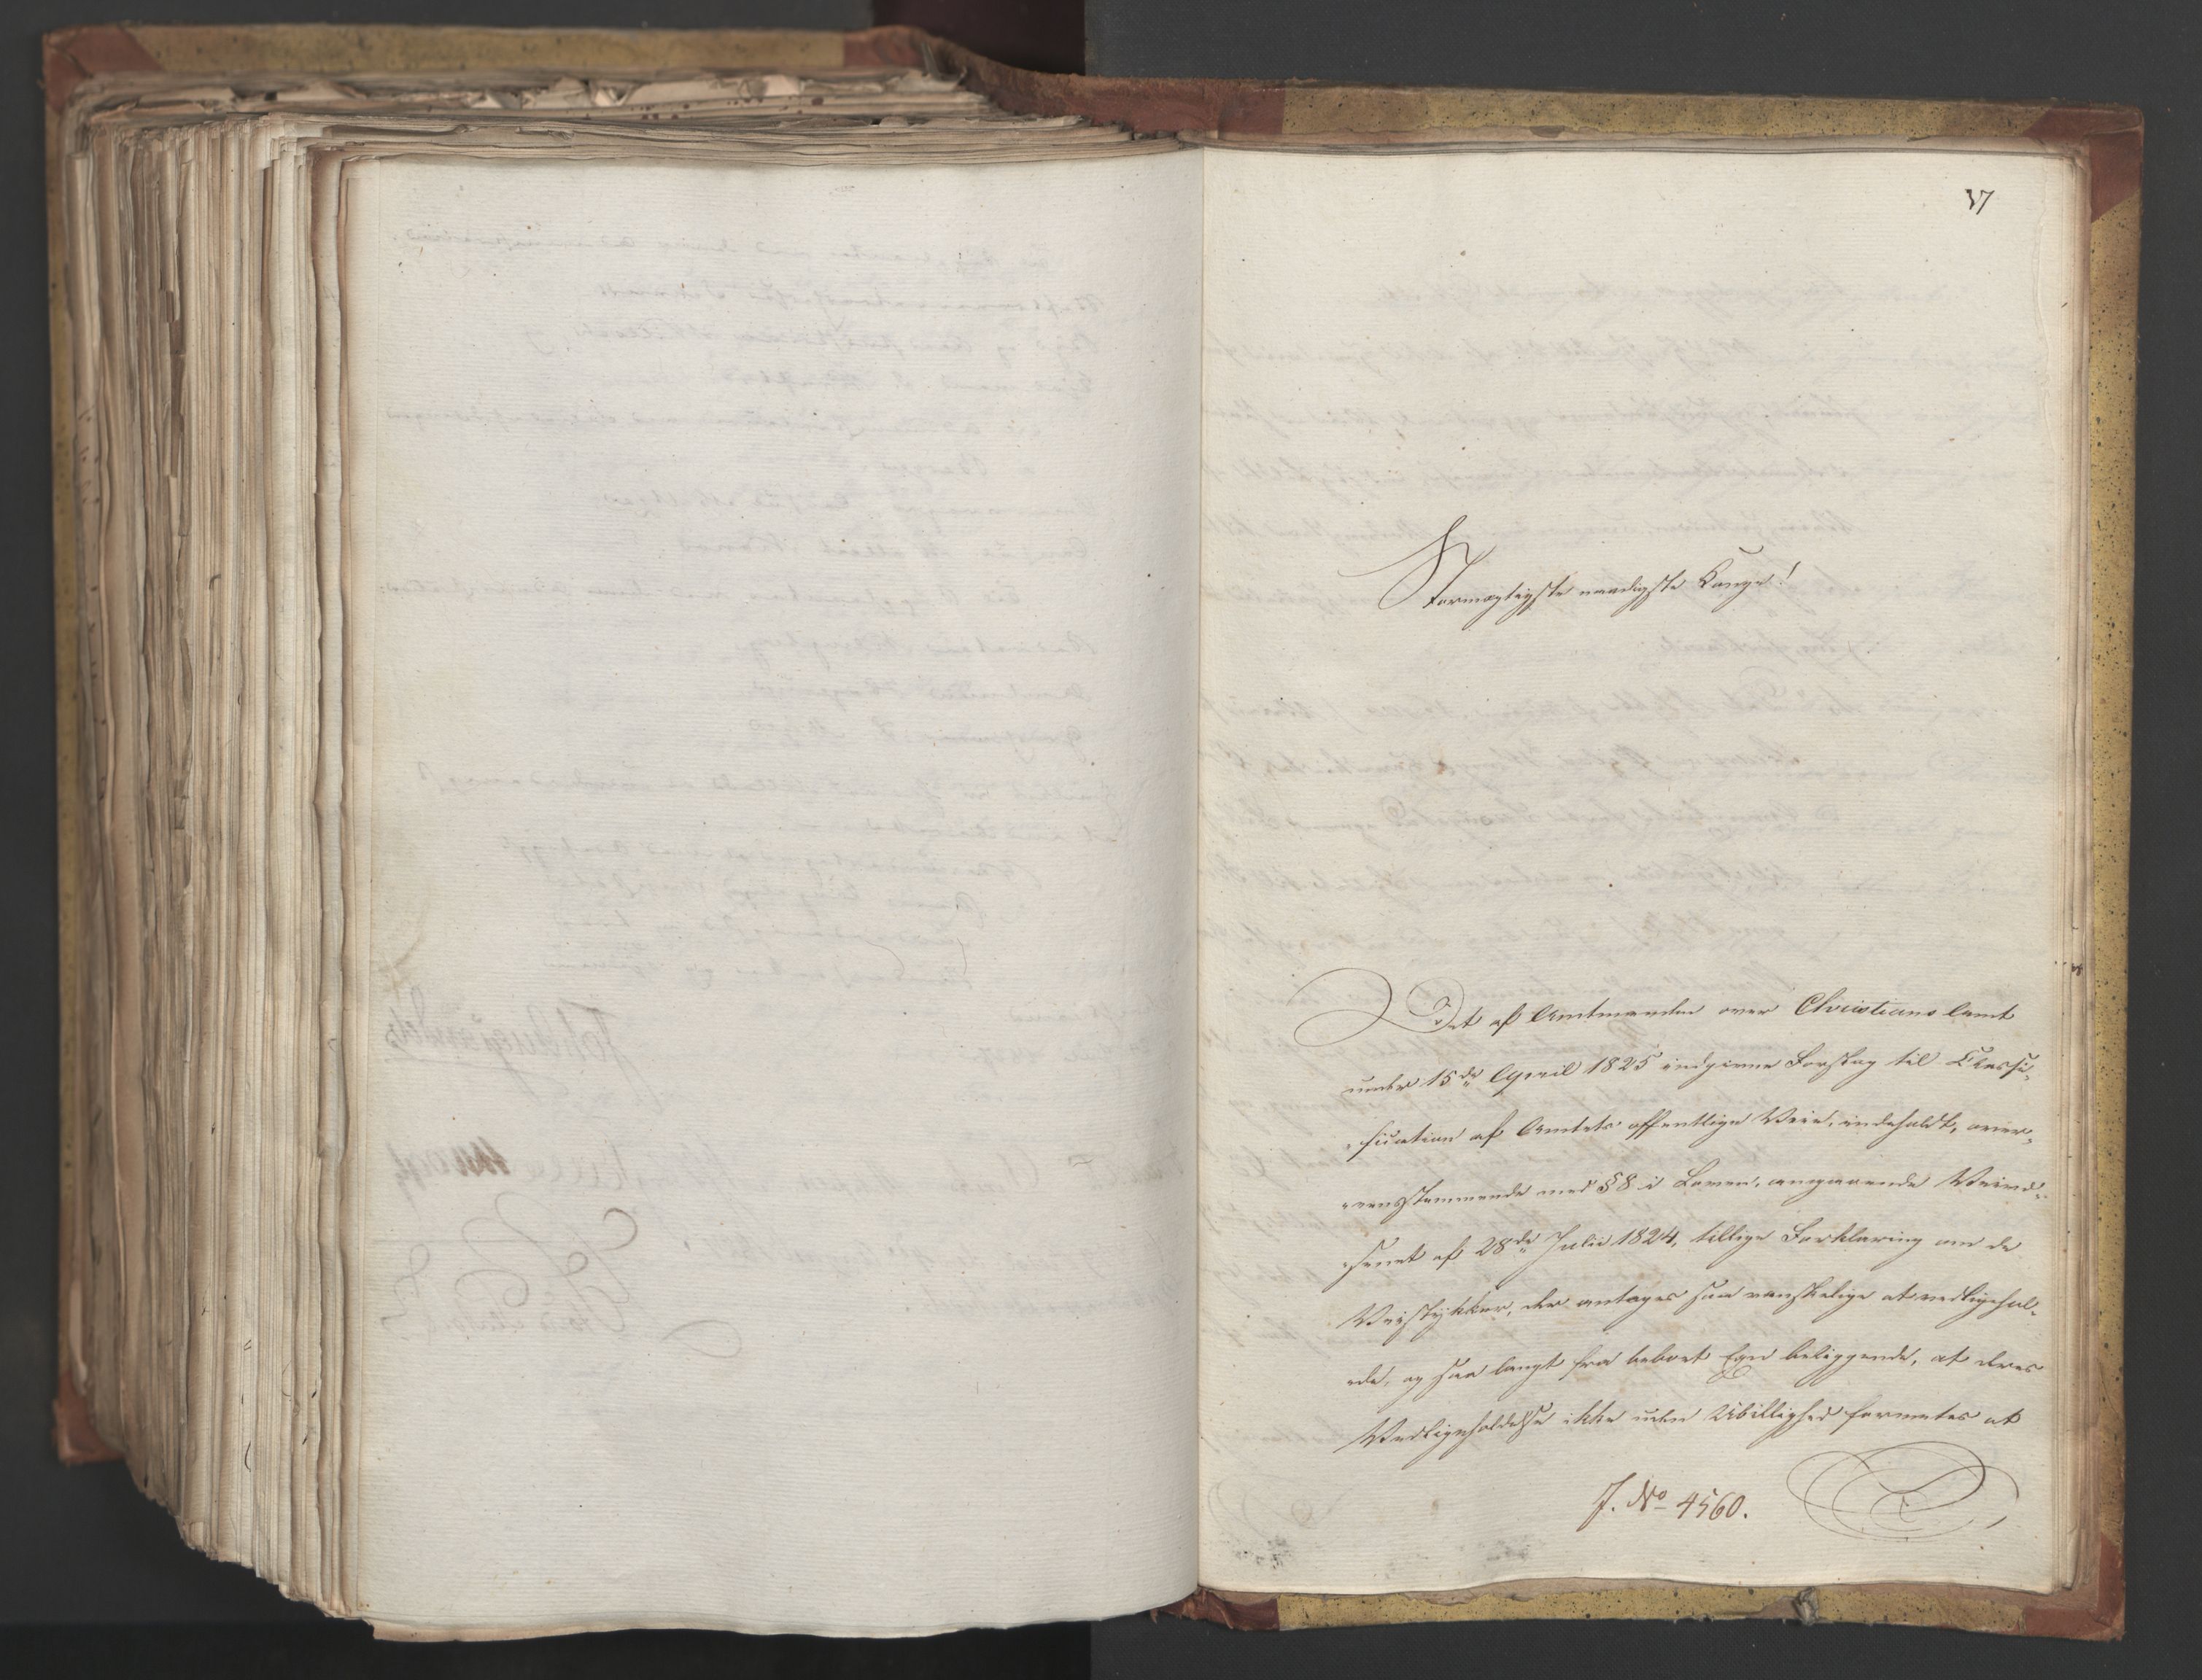 VI
Stormægtigste naadigste Konge!
Det af Amtmanden over Christians Amt
under 15de April 1825 indgivne Forslag til Classi-
fication af Amtets offentlige Veie, indeholdt, over-
eensstemmende med § 8 i Loven, angaaende Veivæ-
senet af 28de Julii 1824, tillige Forklaring om de
Veistykker, der antages saa vanskelige at vedligehol-
de, og saa langt fra beboet Egn beliggende, at deres
Vedligeholdelse ikke uden Ubillighed formentes at
J. No 4560.